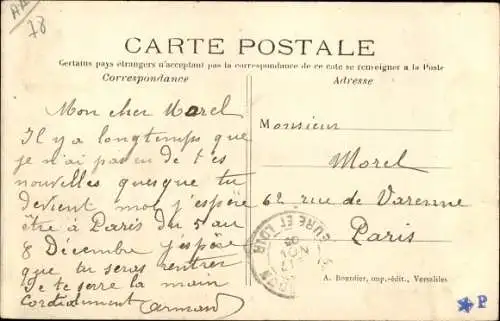 78
CARTE POSTALE
Certains pays étrangers n'acceptant pas la correspondance de ce côté se renseigner à la Poste
Correspondance
Adresse
Mon cher Morel
Il y a longtemps que
je n'ai pas eu de tes
nouvelles quesque tu
devient moi j'espère
être à Paris du 5 au
8 Décembre j'éspère
que tu seras rentrer
Je te serre la main
Cordialement Armand
Monsieur
Morel
62 rue de Varenne
Paris
EURE ET LOIR
NOV
A. Bourdier, imp.-édit., Versailles
P